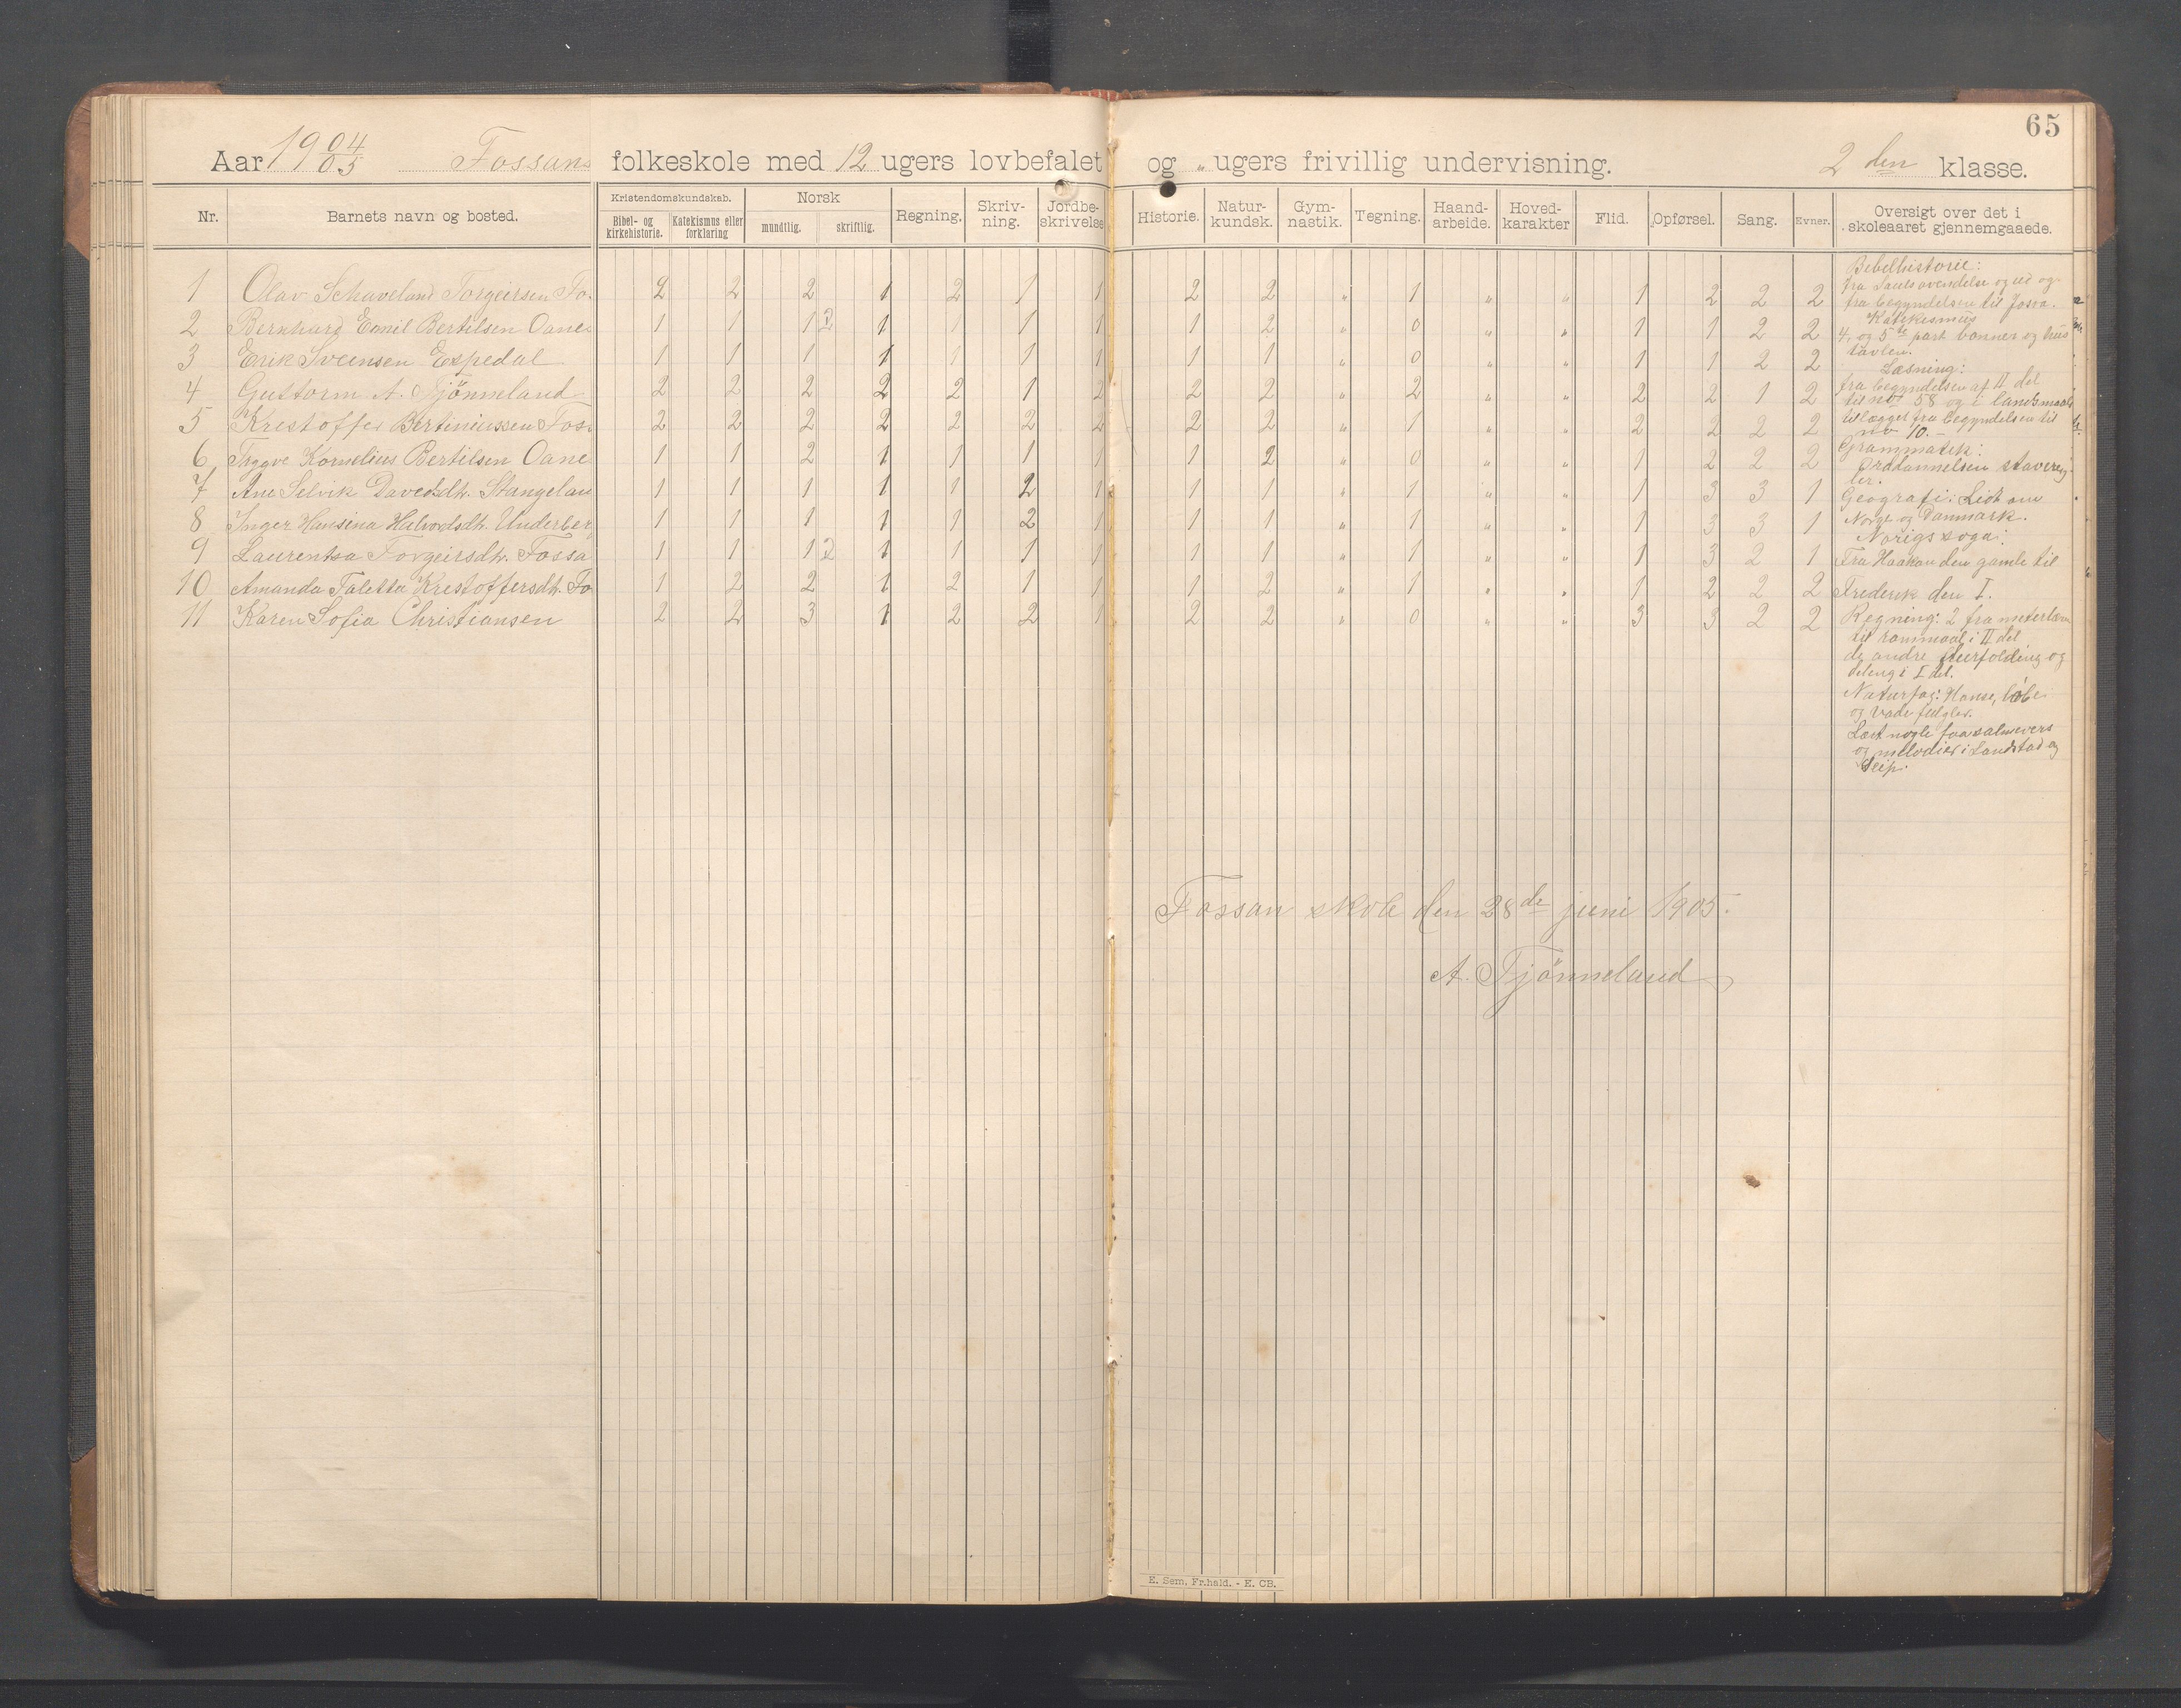 65
Aar 1904/05 Fossan folkeskole med 12 ugers lovbefalet og „ ugers frivillig undervisning. 2 den klasse.
Nr. Barnets navn og bosted. Kristendomskundskab. Bibel- og kirkehistorie. Katekismus eller forklaring Norsk mundtlig. skriftlig. Regning. Skriv-ning. Jordbe-skrivelse Historie. Natur-kundsk. Gym-nastik. Tegning. Haand-arbeide. Hoved-karakter Flid. Opførsel. Sang. Evner. Oversigt over det i skoleaaret gjennemgaaede.
1 Olav Schaveland Torgeirsen Fo 2 2 2 1 2 1 1 2 2 „ 1 „ „ 1 2 2 2
2 Bernhard Emil Bertilsen Oane 1 1 1 2 1 1 1 1 1 2 „ 0 „ „ 1 1 2 2
3 Erik Sveensen Espedal 1 1 1 1 1 1 1 1 1 „ 0 „ „ 1 1 2 2
4 Guttorm A. Tjönneland 2 2 2 2 2 1 2 2 2 „ 2 „ „ 2 2 1 2
5 Kristoffer Bertineussen Fos 2 2 2 2 2 2 2 2 2 „ 1 „ „ 2 2 2 2
6 Trygve Kornelius Bertilsen Oane 1 1 2 1 1 1 1 1 2 „ 0 „ „ 1 2 2 2
7 Ane Selvik Davedsdtr. Stangelan 1 1 1 1 1 2 1 1 1 „ 1 „ „ 1 3 3 1
8 Inger Hansina Halvordsdtr. Underber 1 1 1 1 1 2 1 1 1 „ 1 „ „ 1 3 3 1
9 Laurentsa Torgeirsdtr. Fossa 1 1 1 2 1 1 1 1 1 1 „ 1 „ „ 1 3 2 1
10 Amanda Taletta Krestoffersdtr. Fo 1 2 2 1 2 1 1 1 2 „ 1 „ „ 1 2 2 2
11 Karen Sofia Christiansen 2 2 3 1 2 2 1 2 2 „ 0 „ „ 3 3 2 2
Bibelhistorie:
fra Sauls ovendelse og ud og
fra begyndelsen til Josva.
Katekismus
4. og 5te part bønner og hus
tavlen.
Læsning:
fra begyndelsen af II del
til no 58 og i landsmaals
tillægget fra begyndelsen til
no 10.
Grammatik:
Orddannelsen stavereg
ler.
Geografi: Lidt om
Norge og Danmark.
Norigs soga:
Fra Haakon den gamle til
Frederik den I.
Regning: 2 fra meterlære
til rommaal i II del
de andre flerfolding og
deling i I del.
Naturfag: Hønse, løbe
og vade fulgler.
Lært nogle faa salmevers
og mellodier i Landstad og
Seip.
Fossan skole den 28de juni 1905.
A. Tjönneland
E. Sem, Fr.hald. - E. CB.